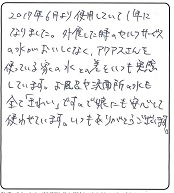 2017年6月より使用していて1年に
なりました。外食した時のセルフサービス
の水がおいしなく、アクアスさんを
使っている家の水との差をいつも実感
しています。お風呂や洗面所の水も
全てきれいですので娘にも安心して
使わせています。いつもありがとうございます。